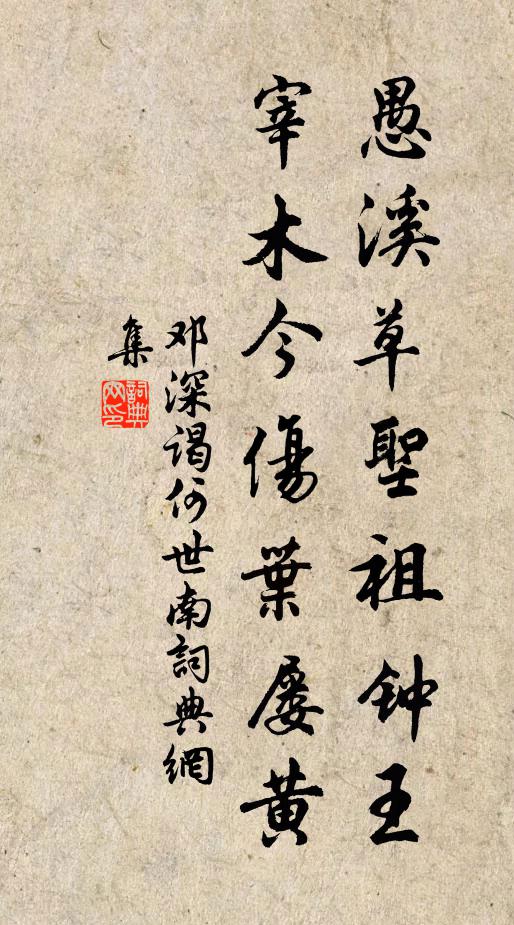 愚溪草聖祖钟王
宰木今傷葉屡黄
邓深谒何世南詞典網
集
詞典網印